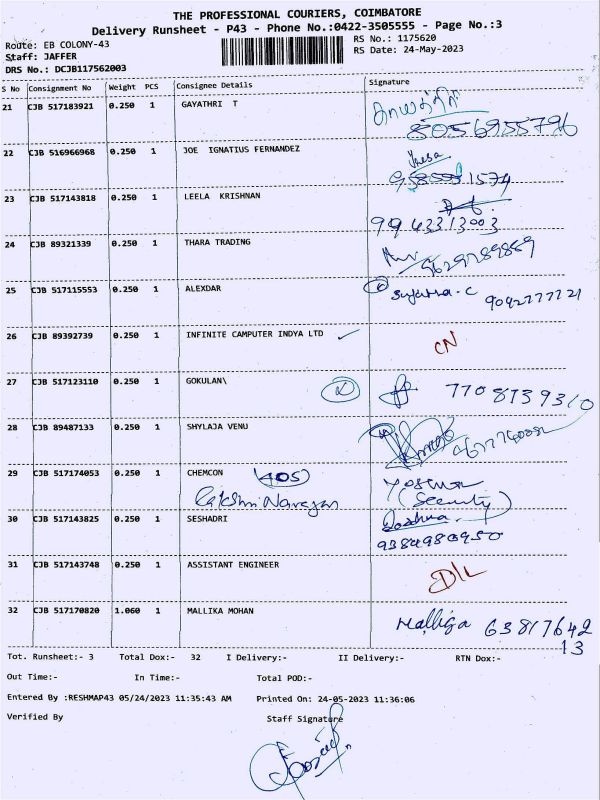 THE PROFESSIONAL COURIERS, COIMBATORE
Delivery Runsheet - P43 - Phone No.:0422-3505555 - Page No.:3
Route: EB COLONY-43
Staff: JAFFER
DRS No.: DCJB117562003
RS No.: 1175620
RS Date: 24-May-2023
S No Consignment No Weight PCS Consignee Details Signature
21 CJB 517183921 0.250 1 GAYATHRI T காயத்ரி
8056955796
22 CJB 516966968 0.250 1 JOE IGNATIUS FERNANDEZ
23 CJB 517143818 0.250 1 LEELA KRISHNAN
9943313003
24 CJB 89321339 0.250 1 THARA TRADING
9629789889
25 CJB 517115553 0.250 1 ALEXDAR Sujatha - C 9042777721
26 CJB 89392739 0.250 1 INFINITE CAMPUTER INDYA LTD ✓ CN
27 CJB 517123110 0.250 1 GOKULAN\ 7708739310
28 CJB 89487133 0.250 1 SHYLAJA VENU
29 CJB 517174053 0.250 1 CHEMCON (405)
Lakshmi Narayan (Security)
30 CJB 517143825 0.250 1 SESHADRI
9384980950
31 CJB 517143748 0.250 1 ASSISTANT ENGINEER D/L
32 CJB 517170820 1.060 1 MALLIKA MOHAN Malliga 63817642
13
Tot. Runsheet:- 3 Total Dox:- 32 I Delivery:- II Delivery:- RTN Dox:-
Out Time:- In Time:- Total POD:-
Entered By :RESHMAP43 05/24/2023 11:35:43 AM Printed On: 24-05-2023 11:36:06
Verified By Staff Signature